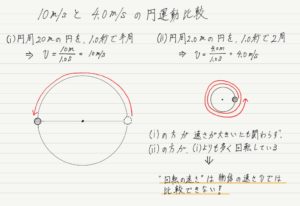 10m/s と 4.0m/s の円運動比較
(i) 円周20mの円を、1.0秒で半周
⇒ v = 10m/1.0s = 10m/s
(ii) 円周2.0mの円を、1.0秒で2周
⇒ v = 4.0m/1.0s = 4.0m/s
(i)の方が速さが大きいにも関わらず、
(ii)の方が(i)よりも多く回転している
⇓
"回転の速さ"は物体の速さvでは
比較できない!